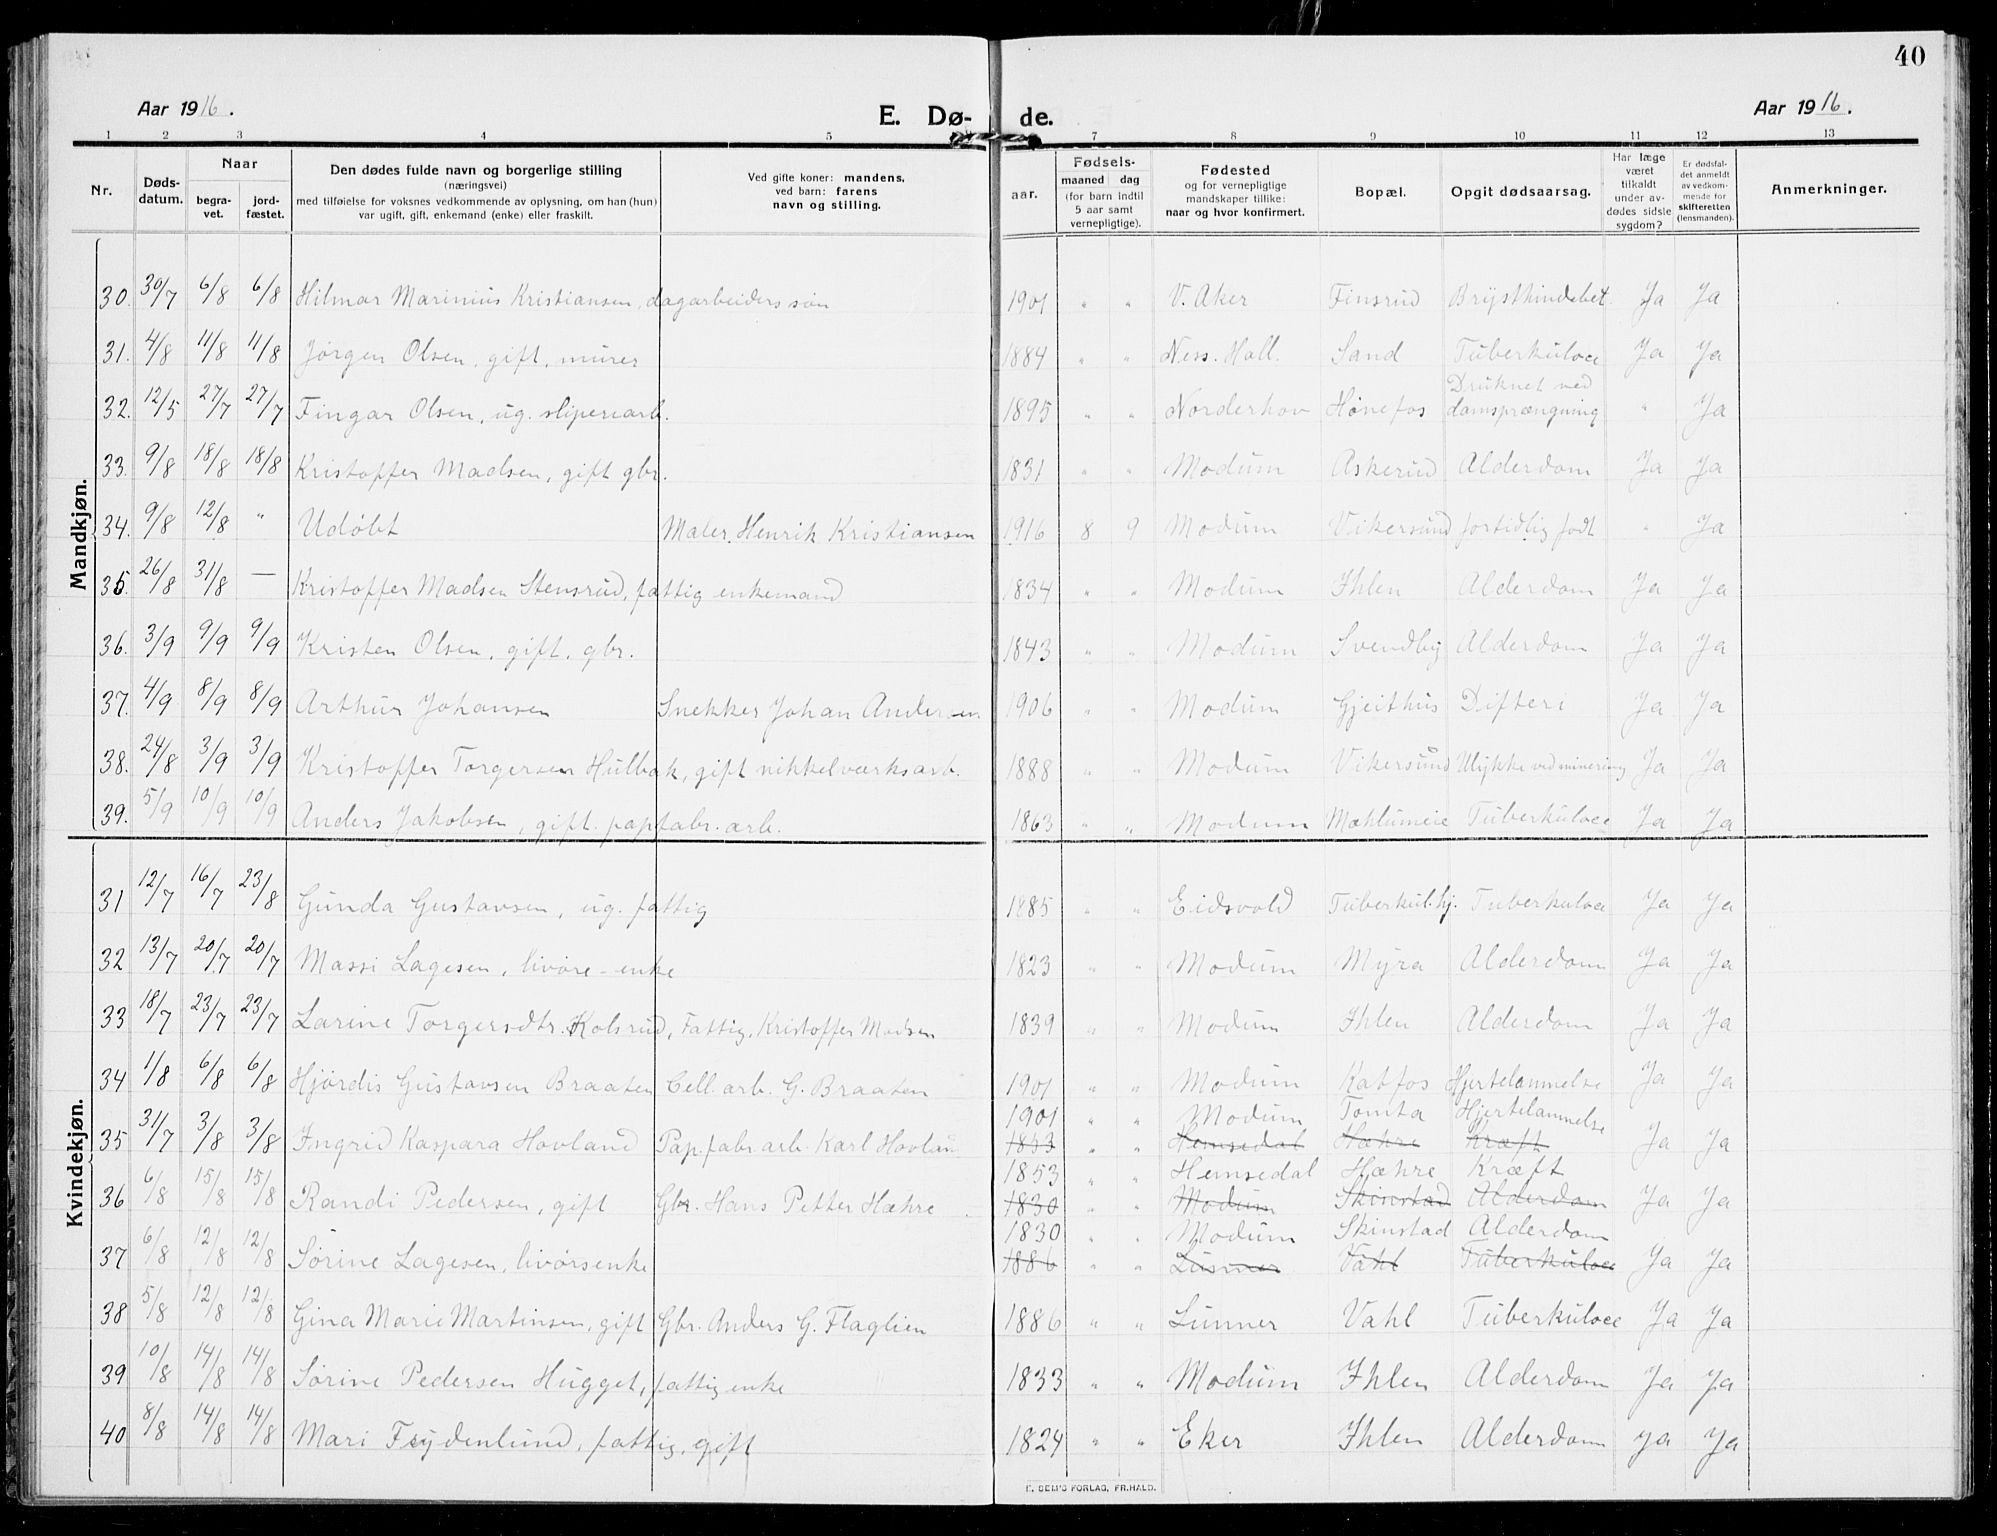 40
Aar 1916. E. Dø- de. Aar 1916.
1 2 3 4 5 7 8 9 10 11 12 13
Nr. Døds-datum. Naar begra-vet. jord-fæstet. Den dødes fulde navn og borgerlige stilling (næringsvei) med tilføielse for voksnes vedkommende av oplysning, om han (hun) var ugift, gift, enkemand (enke) eller fraskilt. Ved gifte koner: mandens, ved barn: farens navn og stilling. aar. Fødsels- maaned dag (for barn indtil 5 aar samt vernepligtige). Fødested og for vernepligtige mandskaper tillike: naar og hvor konfirmert. Bopæl. Opgit dødsaarsag. Har læge været tilkaldt under av-dødes sidste sygdom? Er dødsfal-det anmeldt av vedkom-mende for skifteretten (lensmanden). Anmerkninger.
Mandkjøn.
30. 30/7 6/8 6/8 Hilmar Marinius Kristiansen, dagarbeiders søn 1901 " " V. Aker Finsrud Brysthindebet. Ja Ja
31. 4/8 11/8 11/8 Jørgen Olsen, gift, murer 1884 " " Ness. Hall. Sand Tuberkuloce Ja Ja
32. 12/5 27/7 27/7 Fingar Olsen, ug. sliperiarb. 1895 " " Norderhov Hønefos Druknet ved damsprængning " Ja
33. 9/8 18/8 18/8 Kristoffer Madsen, gift gbr. 1831 " " Modum Askerud Alderdom Ja Ja
34. 9/8 12/8 " Udøbt Maler. Henrik Kristiansen 1916 8 9 Modum Vikersund fortidlig født " Ja
35. 26/8 31/8 — Kristoffer Madsen Stensrud, fattig enkemand 1834 " " Modum Ihlen Alderdom Ja Ja
36. 3/9 9/9 9/9 Kristen Olsen, gift, gbr. 1843 " " Modum Svendby Alderdom Ja Ja
37. 4/9 8/9 8/9 Arthur Johansen Snekker Johan Andersen 1906 " " Modum Gjeithus Difteri Ja Ja
38. 24/8 3/9 3/9 Kristoffer Torgersen Hulbak, gift nikkelværksarb. 1888 " " Modum Vikersund Ulykke ved minering Ja Ja
39. 5/9 10/9 10/9 Anders Jakobsen, gift. papfabr. arb. 1863 " " Modum Mæhlumeie Tuberkuloce Ja Ja
Kvindekjøn.
31 12/7 16/7 23/8 Gunda Gustavsen, ug. fattig 1885 " " Eidsvold Tuberkul.hj. Tuberkuloce Ja Ja
32 13/7 20/7 20/7 Massi Lagesen, livøre-enke 1823 " " Modum Myra Alderdom Ja Ja
33 18/7 23/7 23/7 Larine Torgersdtr. Kolsrud, Fattig. Kristoffer Madsen 1839 " " Modum Ihlen Alderdom Ja Ja
34 1/8 6/8 6/8 Hjørdis Gustavsen Braaten Cell. arb. G. Braaten 1901 " " Modum Katfos Hjertelammelse Ja Ja
1901 Modum Tomta Hjertelammelse
35 31/7 3/8 3/8 Ingrid Kaspara Hovland Pap.fabr.arb. Karl Hovland 1853 " " Hemsedal Hæhre Kræft Ja Ja
1853 Hemsedal Hæhre Kræft
36 6/8 15/8 15/8 Randi Pedersen, gift Gbr. Hans Petter Hæhre 1830 " " Modum Skinstad Alderdom Ja Ja
1830 Modum Skinstad Alderdom
37 6/8 12/8 12/8 Sørine Lagesen, livørsenke 1886 " " Lunner Vahl Tuberkuloce Ja Ja
38 5/8 12/8 12/8 Gina Marie Martinsen, gift Gbr. Anders G. Flaglien 1886 " " Lunner Vahl Tuberkuloce Ja Ja
39 10/8 14/8 14/8 Sørine Pedersen Hugget, fattig enke 1833 " " Modum Ihlen Alderdom Ja Ja
40 8/8 14/8 14/8 Mari Frydenlund, fattig, gift 1824 " " Eker Ihlen Alderdom Ja Ja
E. SEM'S FORLAG, FR.HALD.